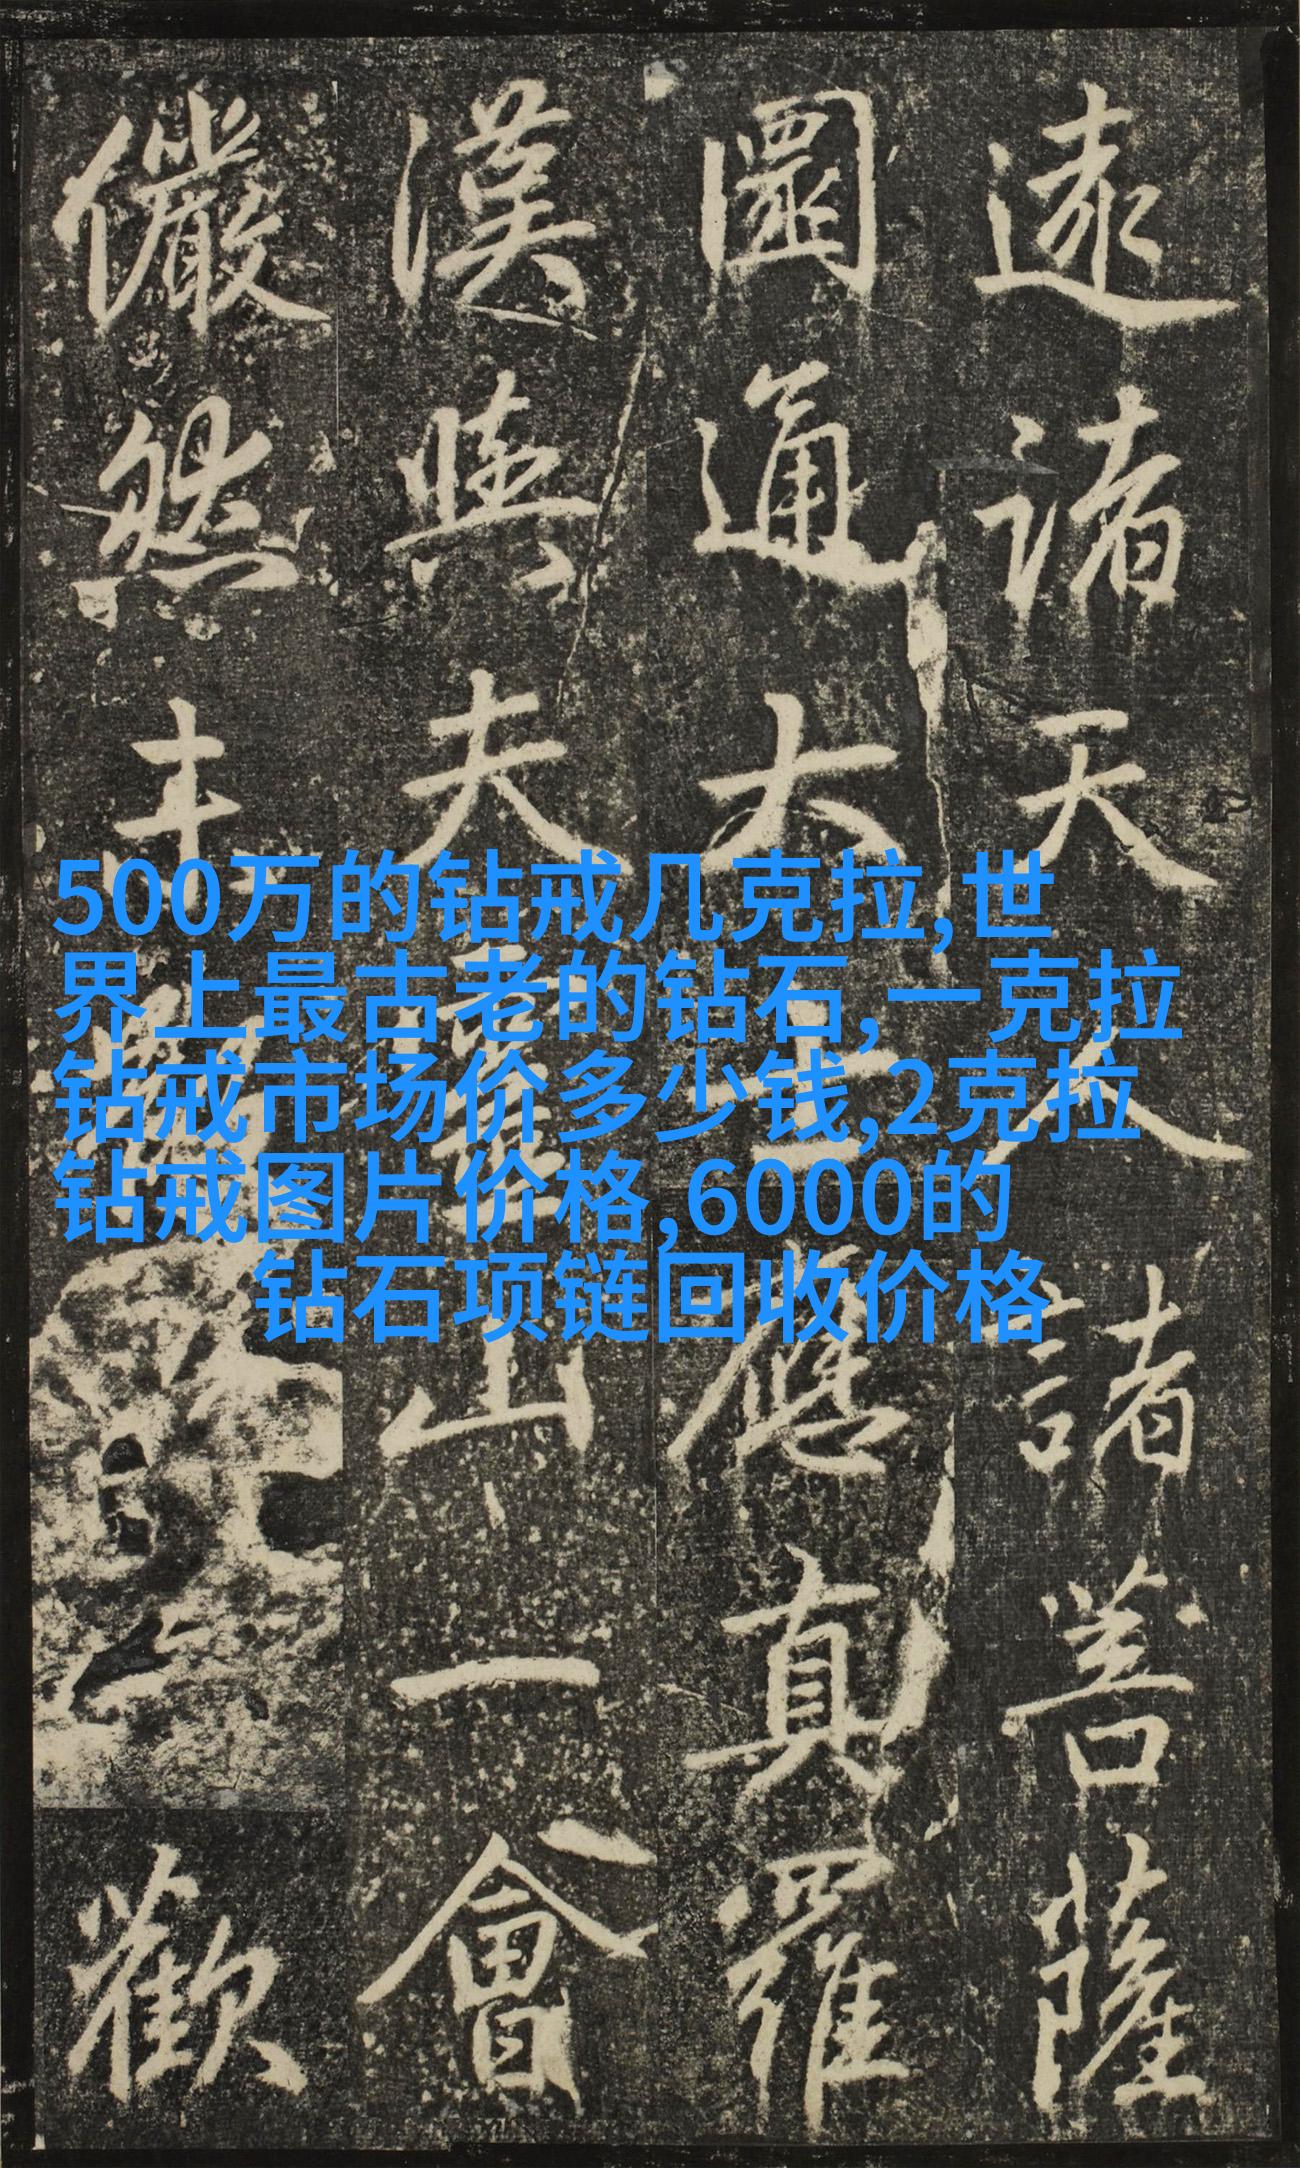 逮諸天人諸菩薩
圓通大士應真羅
漢與夫靈山一會
儼然歡
500万的钻戒几克拉,世
界上最古老的钻石,一克拉
钻戒市场价多少钱,2克拉
钻戒图片价格,6000的
钻石项链回收价格